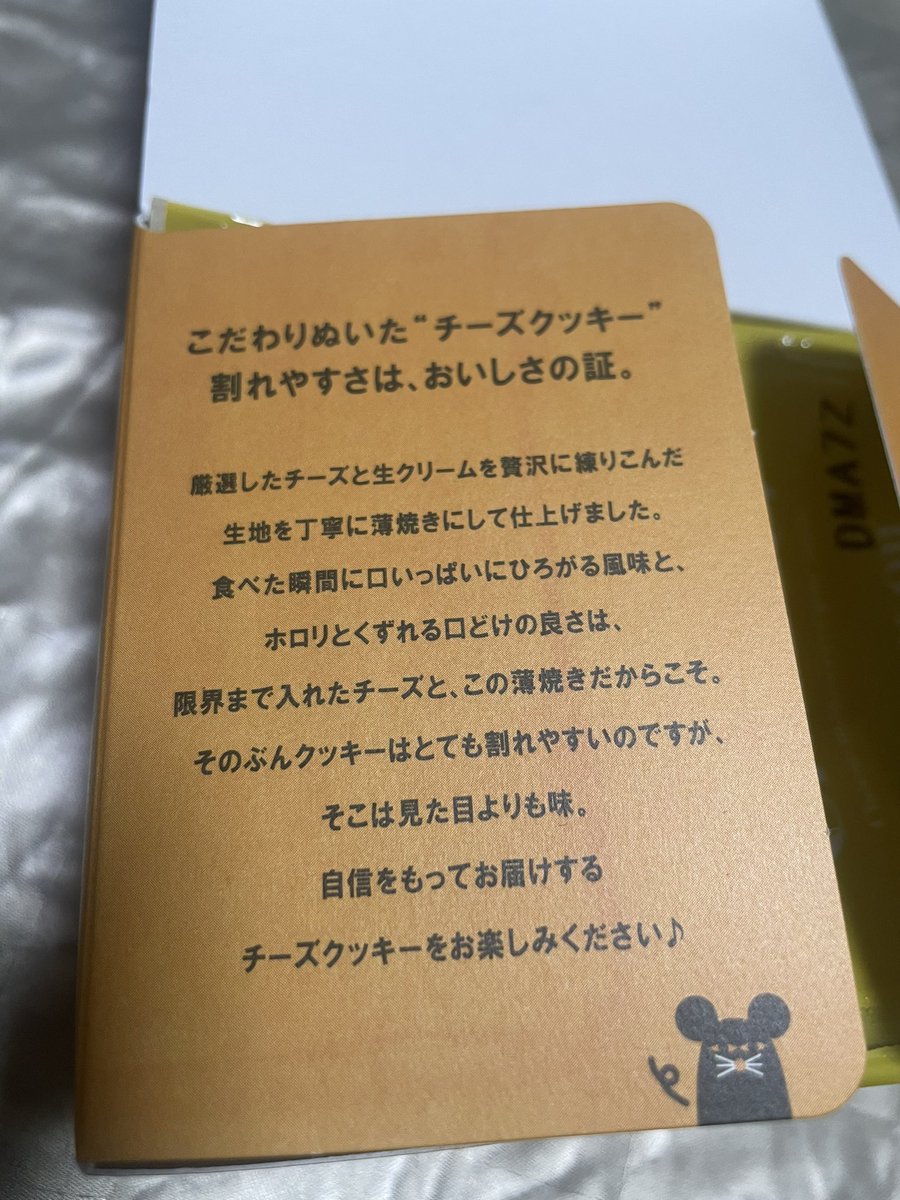 こだわりぬいた“チーズクッキー”
割れやすさは、おいしさの証。
厳選したチーズと生クリームを贅沢に練りこんだ
生地を丁寧に薄焼きにして仕上げました。
食べた瞬間に口いっぱいにひろがる風味と、
ホロリとくずれる口どけの良さは、
限界まで入れたチーズと、この薄焼きだからこそ。
そのぶんクッキーはとても割れやすいのですが、
そこは見た目よりも味。
自信をもってお届けする
チーズクッキーをお楽しみください♪
DMA7Z